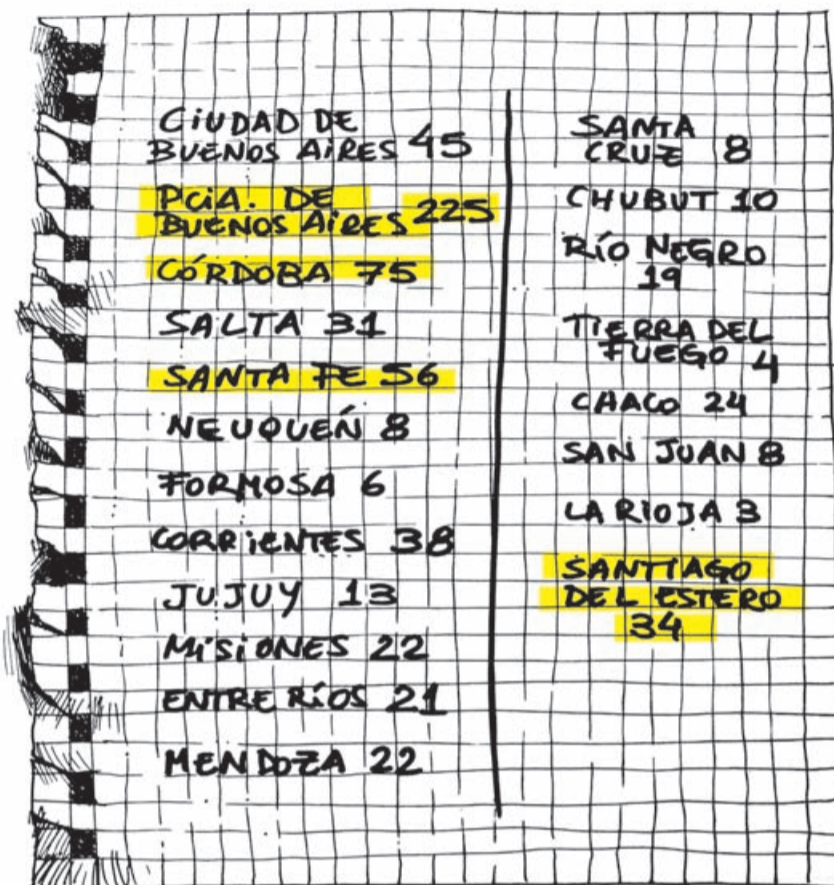 CiUDAD DE
BUENOS AiRES 45
PCiA. DE
BUENOS AiRES 225
CÓRDOBA 75
SALTA 31
SANTA FE 56
NEUQUEŃ 8
FORMOSA 6
CORRiENTES 38
JUJUY 13
MiSiONES 22
ENTRE RÍOS 21
MENDOZA 22
SANTA
CRUZ 8
CHUBUT 10
RÍO NEGRO
19
TIERRA DEL
FUEGO 4
CHACO 24
SAN JUAN 8
LA RIOJA 3
SANTIAGO
DEL ESTERO
34